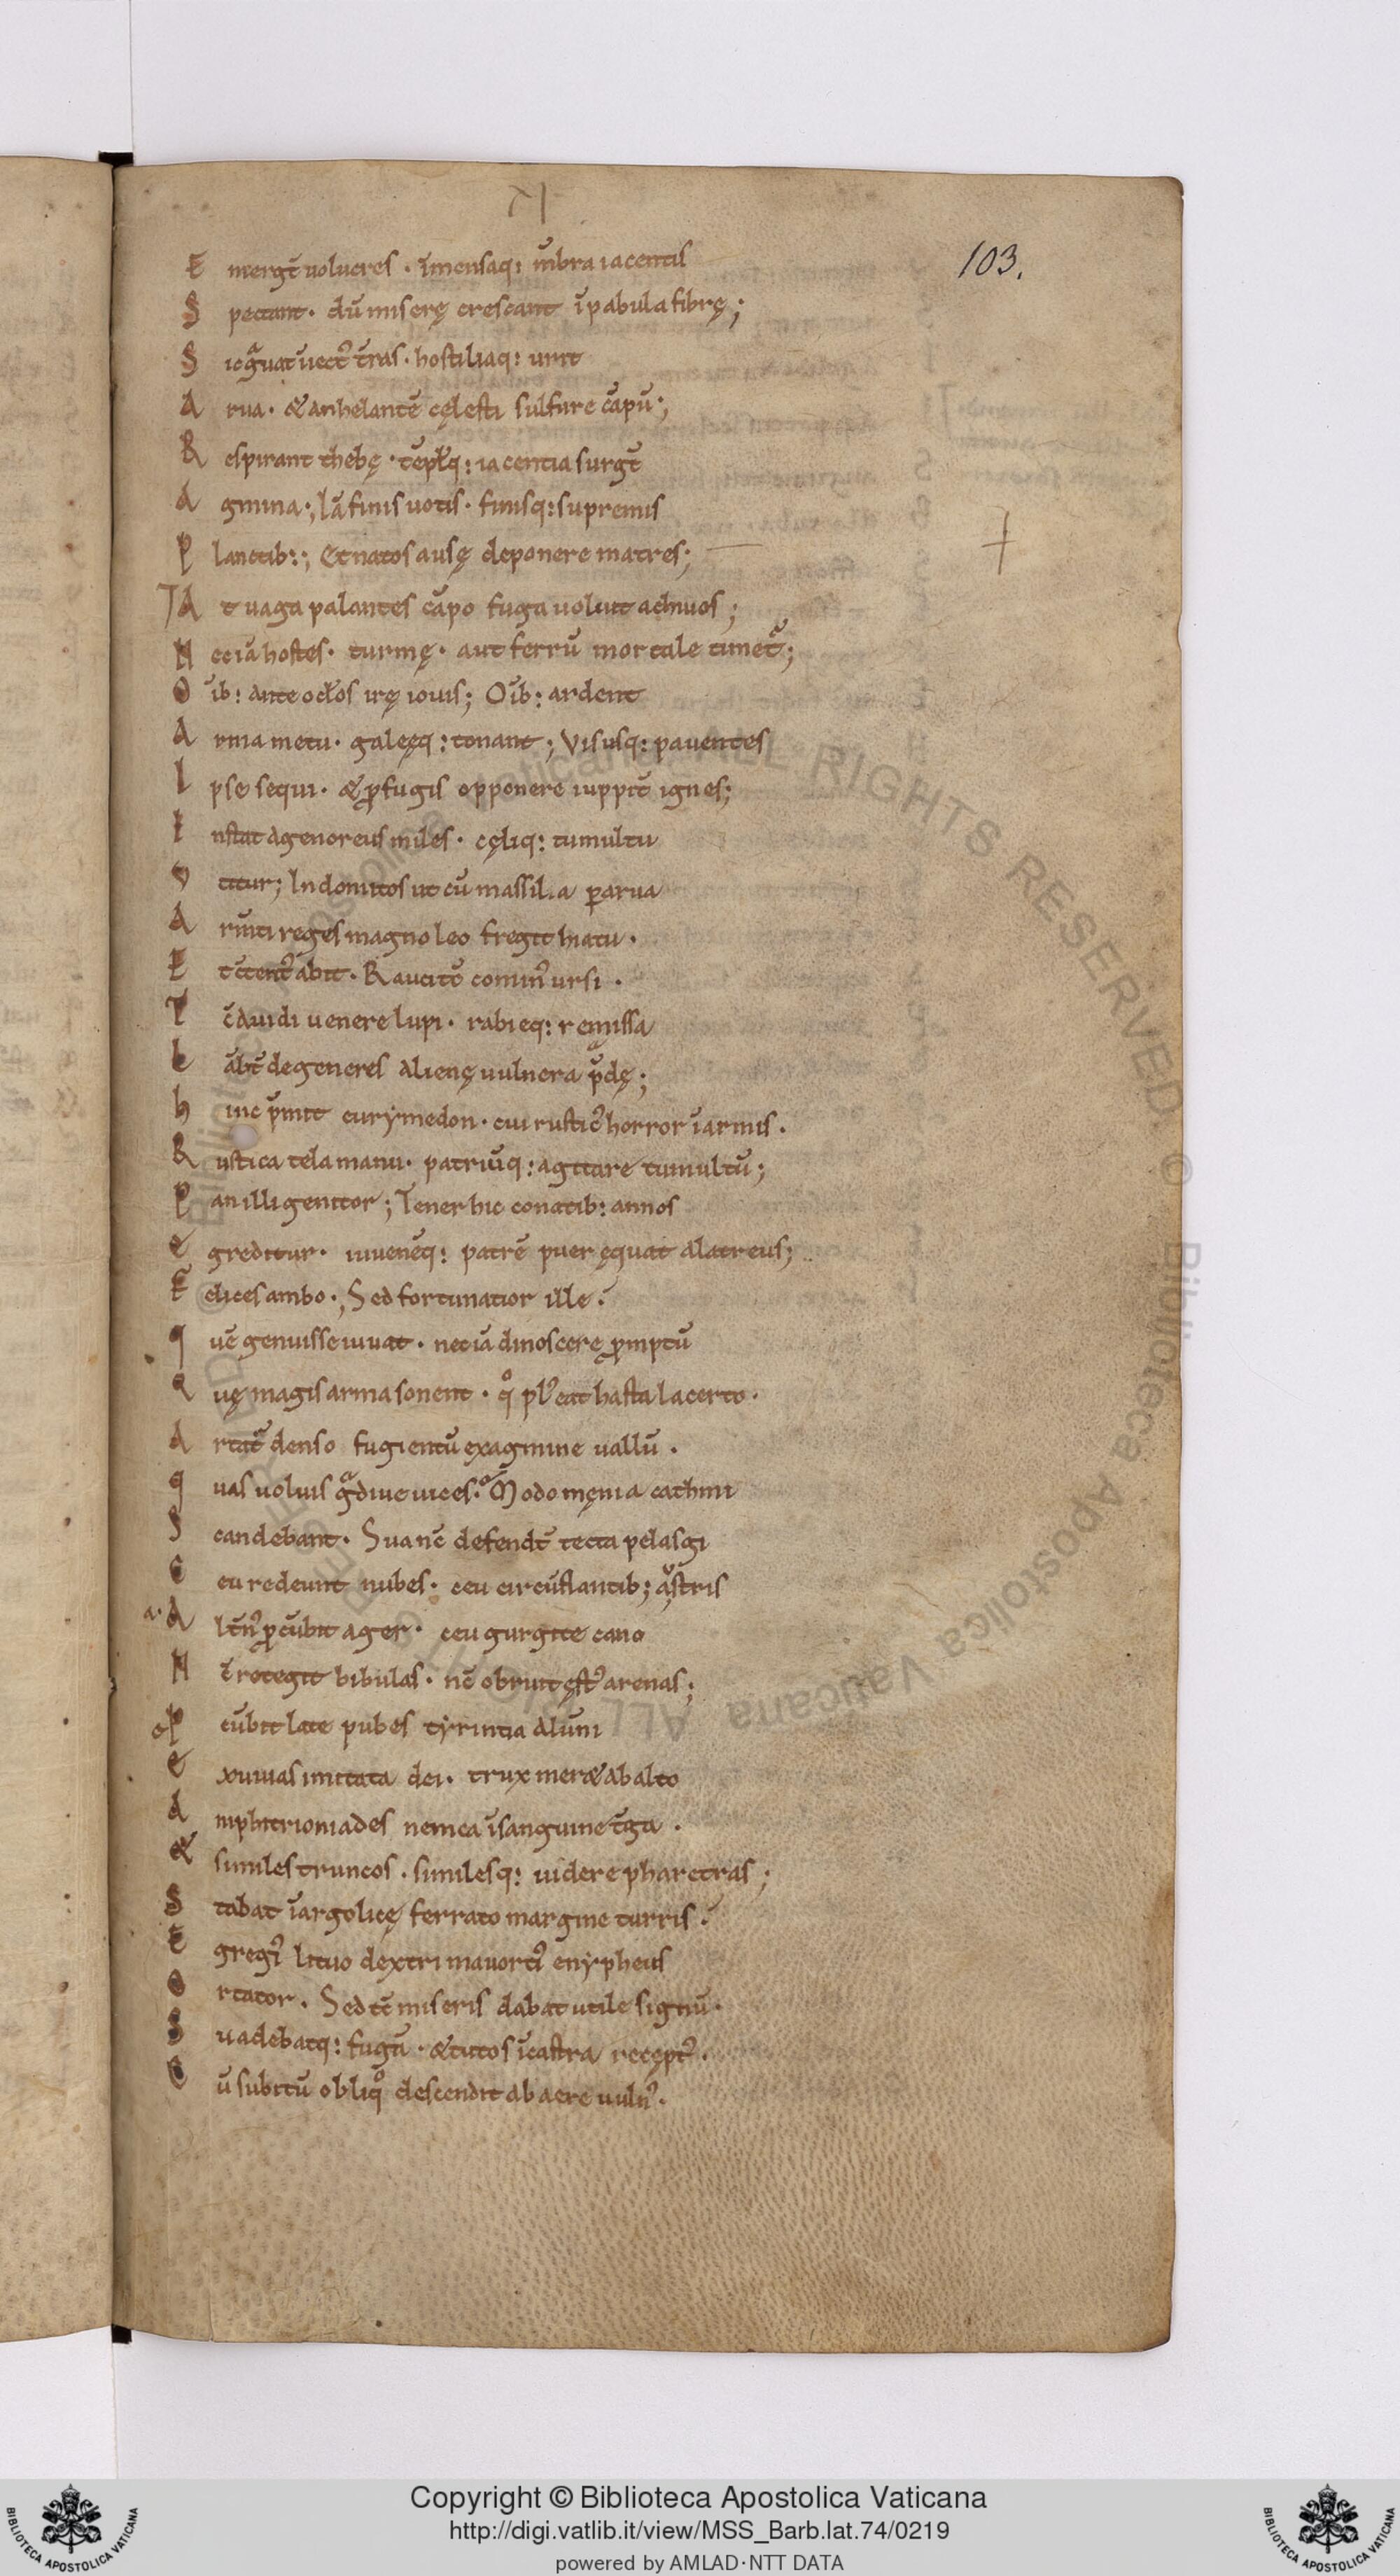 XI
103.
E mergē uolucres · īmensaq: mēbra iacentis
S pectant · dū miserę crescant ī pabula fibrę;
S ic gͣuat iectꝰ tr̄ras · hostiliaq: urit
A rua · & anhelantē cęlesti sulfure cāpū;
R espirant thebę · tēpl'q: iacentia surgt̄
A gmina; Iā finis uotis · finisq: supremis
P lanctib:; Et natos ausę deponere matres;
A t uaga palantes cāpo fuga uoluit achiuos;
N ec iā hostes · turmę · aut ferrū mortale timet̄;
O īb: ante oclos irę iouis; Oīb: ardent
A rma metu · galeęq: tonant; Visusq: pauentes
I pse sequi · & ꝓfugis opponere iuppit̄ ignes;
I nstat agenoreus miles · cęliq: tumultu
V titur; Indomitos ut cū massila ꝑ arua
A rm̄ti reges magno leo fregit hiatu ·
E t c̄tentꝰ abit · Rauci tc̄ comin' ursi ·
T c̄ auidi uenere lupi · rabieq: remissa
L ābt̄ degeneres alienę uulnera p̄dę;
h inc p̄mit eurymedon · cui rusticꝰ horror ī armis ·
R ustica tela manu · patriūq: agitare tumultū;
P an illi genitor; Tener hic conatib: annos
E greditur · iuuenēq: patrē puer ęquat alatreus;
F elices ambo; Sed fortunatior ille ·
q uē genuisse iuuat · nec iā dinoscere ꝓmptū
Q uę magis arma sonent · qͦ pl' eat hasta lacerto ·
A rtat̄ denso fugientū exagmine uallū ·
q uas uoluis gͣdiue uices · Modo męnia cathmi
S candebant · Sua nc̄ defendt̄ tecta pelasgi
C eu redeunt nubes · ceu circūflantib; austris
A ltn̄ꝰ ꝓcūbit ager · ceu gurgite cano
N c̄ retegit bibulas · nc̄ obruit ęstꝰ arenas;
P cūbit late pubes tyrintia alūni
E xuuias imitata dei · trux meret ab alto
A mphitrioniades nemea ī sanguine t̄ga ·
& similes truncos · similesq: uidere pharetras;
S tabat ī argolicę ferrato margine turris ·
E gregiꝰ lituo dextri mauortiꝰ enypheus
O rtator · Sed tc̄ miseris dabat utile signū ·
S uadebatq: fugā · & tutos ī castra receptꝰ ·
C ū subitū obliqͦ descendit ab aere uulnꝰ ·
Copyright © Biblioteca Apostolica Vaticana
http://digi.vatlib.it/view/MSS_Barb.lat.74/0219
powered by AMLAD·NTT DATA